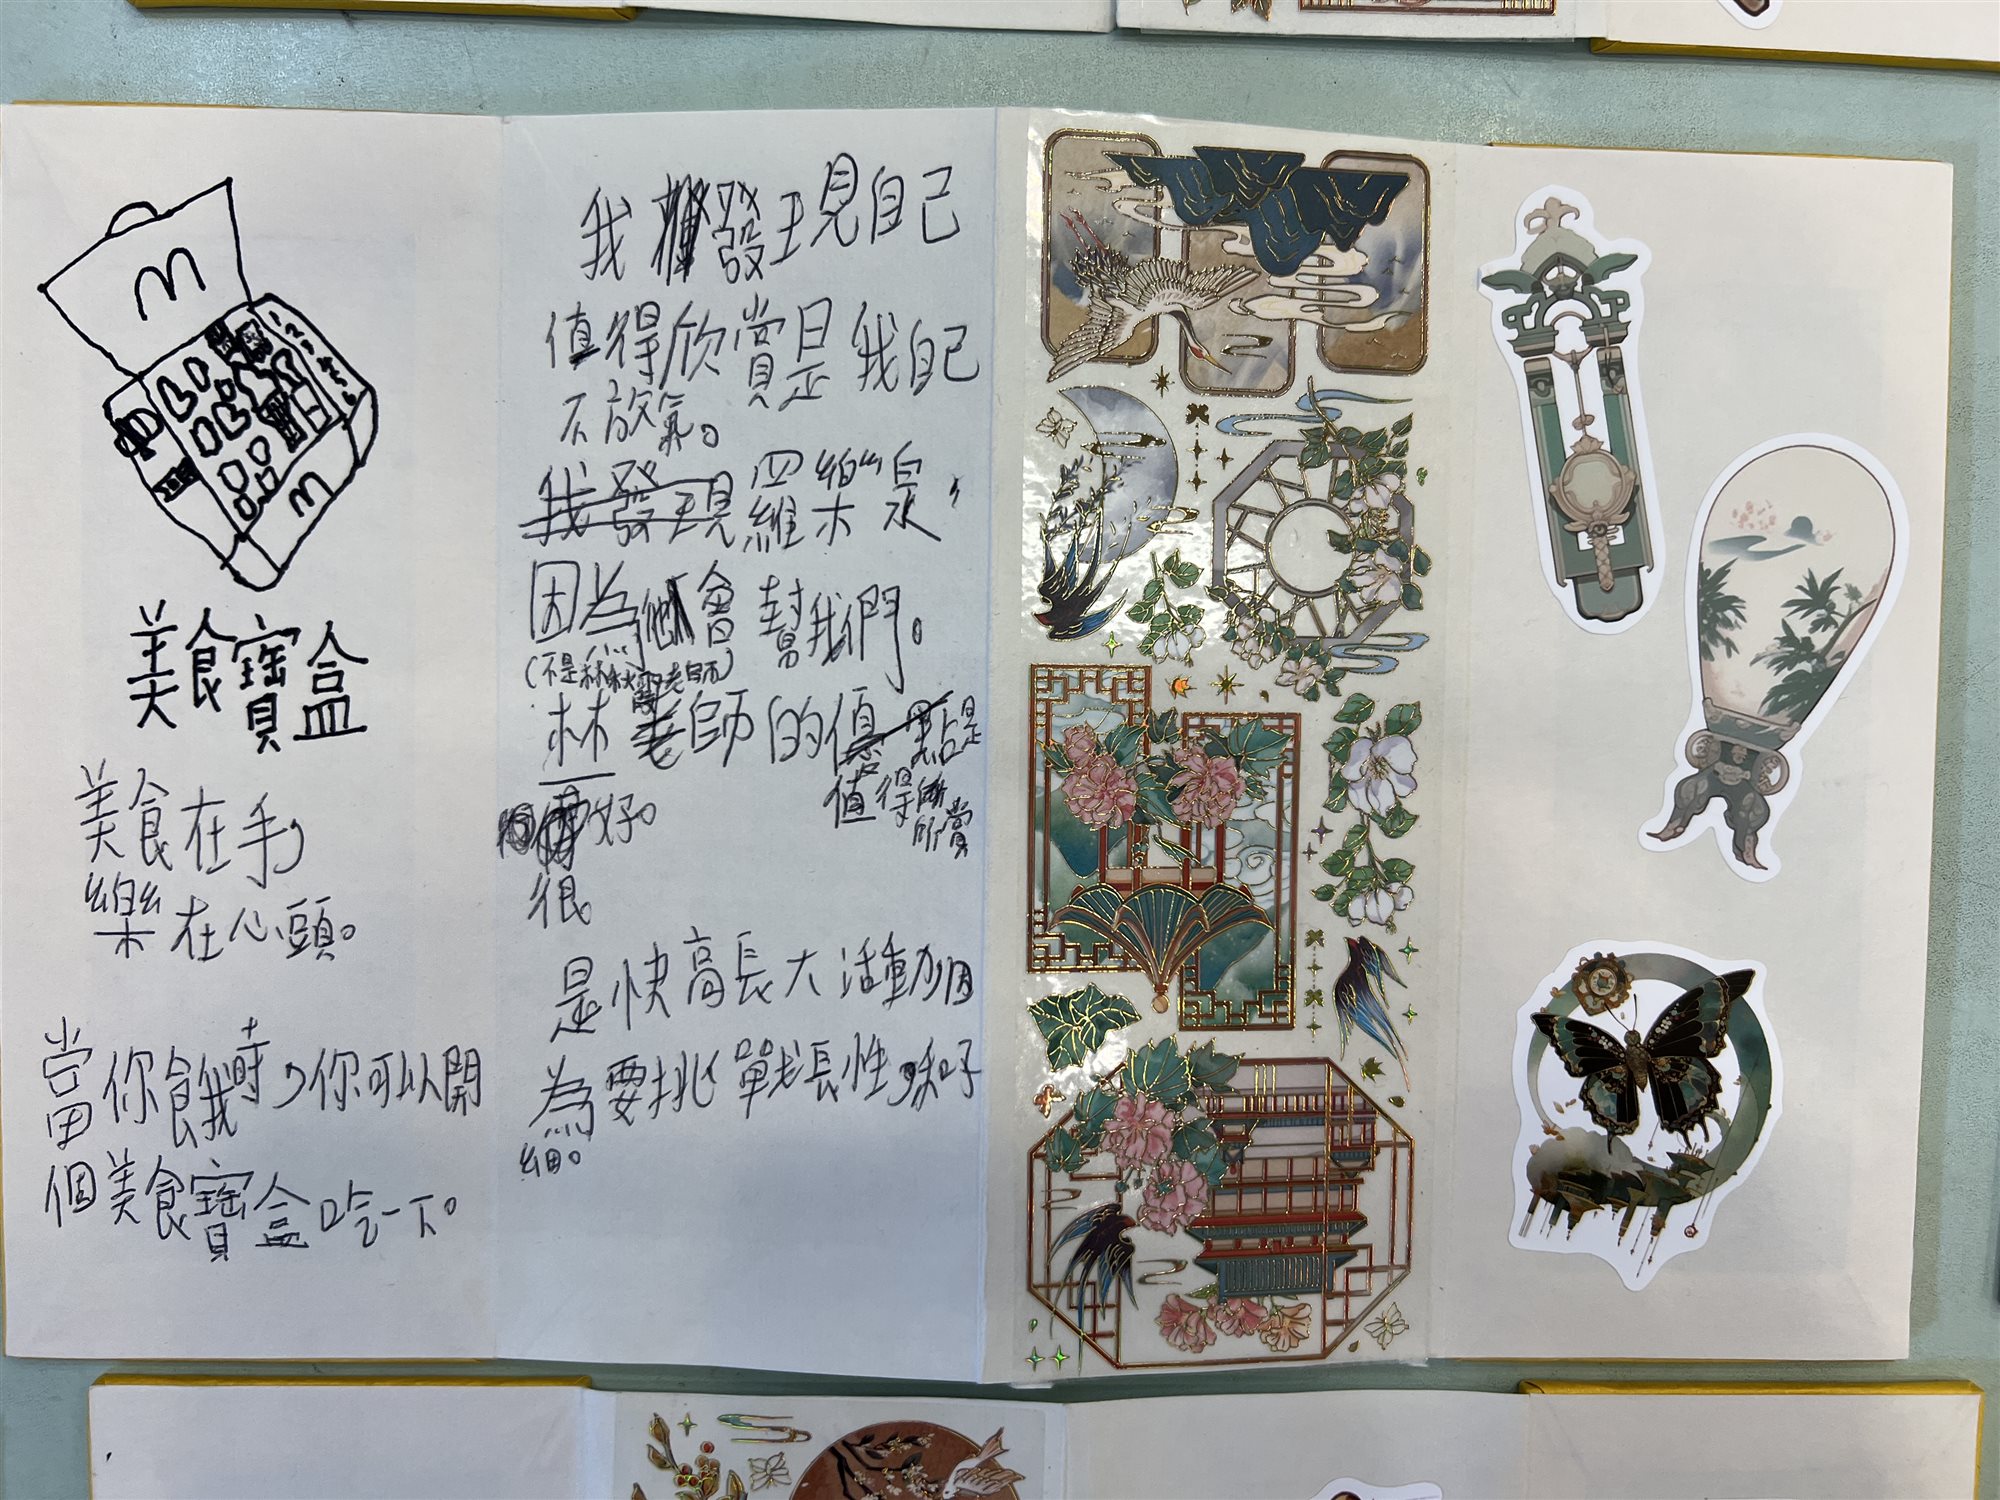 M
M
美食寶盒
美食在手,
樂在心頭。
當你餓時,你可以開
個美食寶盒吃一下。
我發現自己
值得欣賞是我自己
不放氣。
我發現羅樂泉,
因為他會幫我們。
(不是林秋霞老師)
林老師的優點是
值得欣賞
好。
很
是快高長大活動因
為要挑戰長性和仔
細。